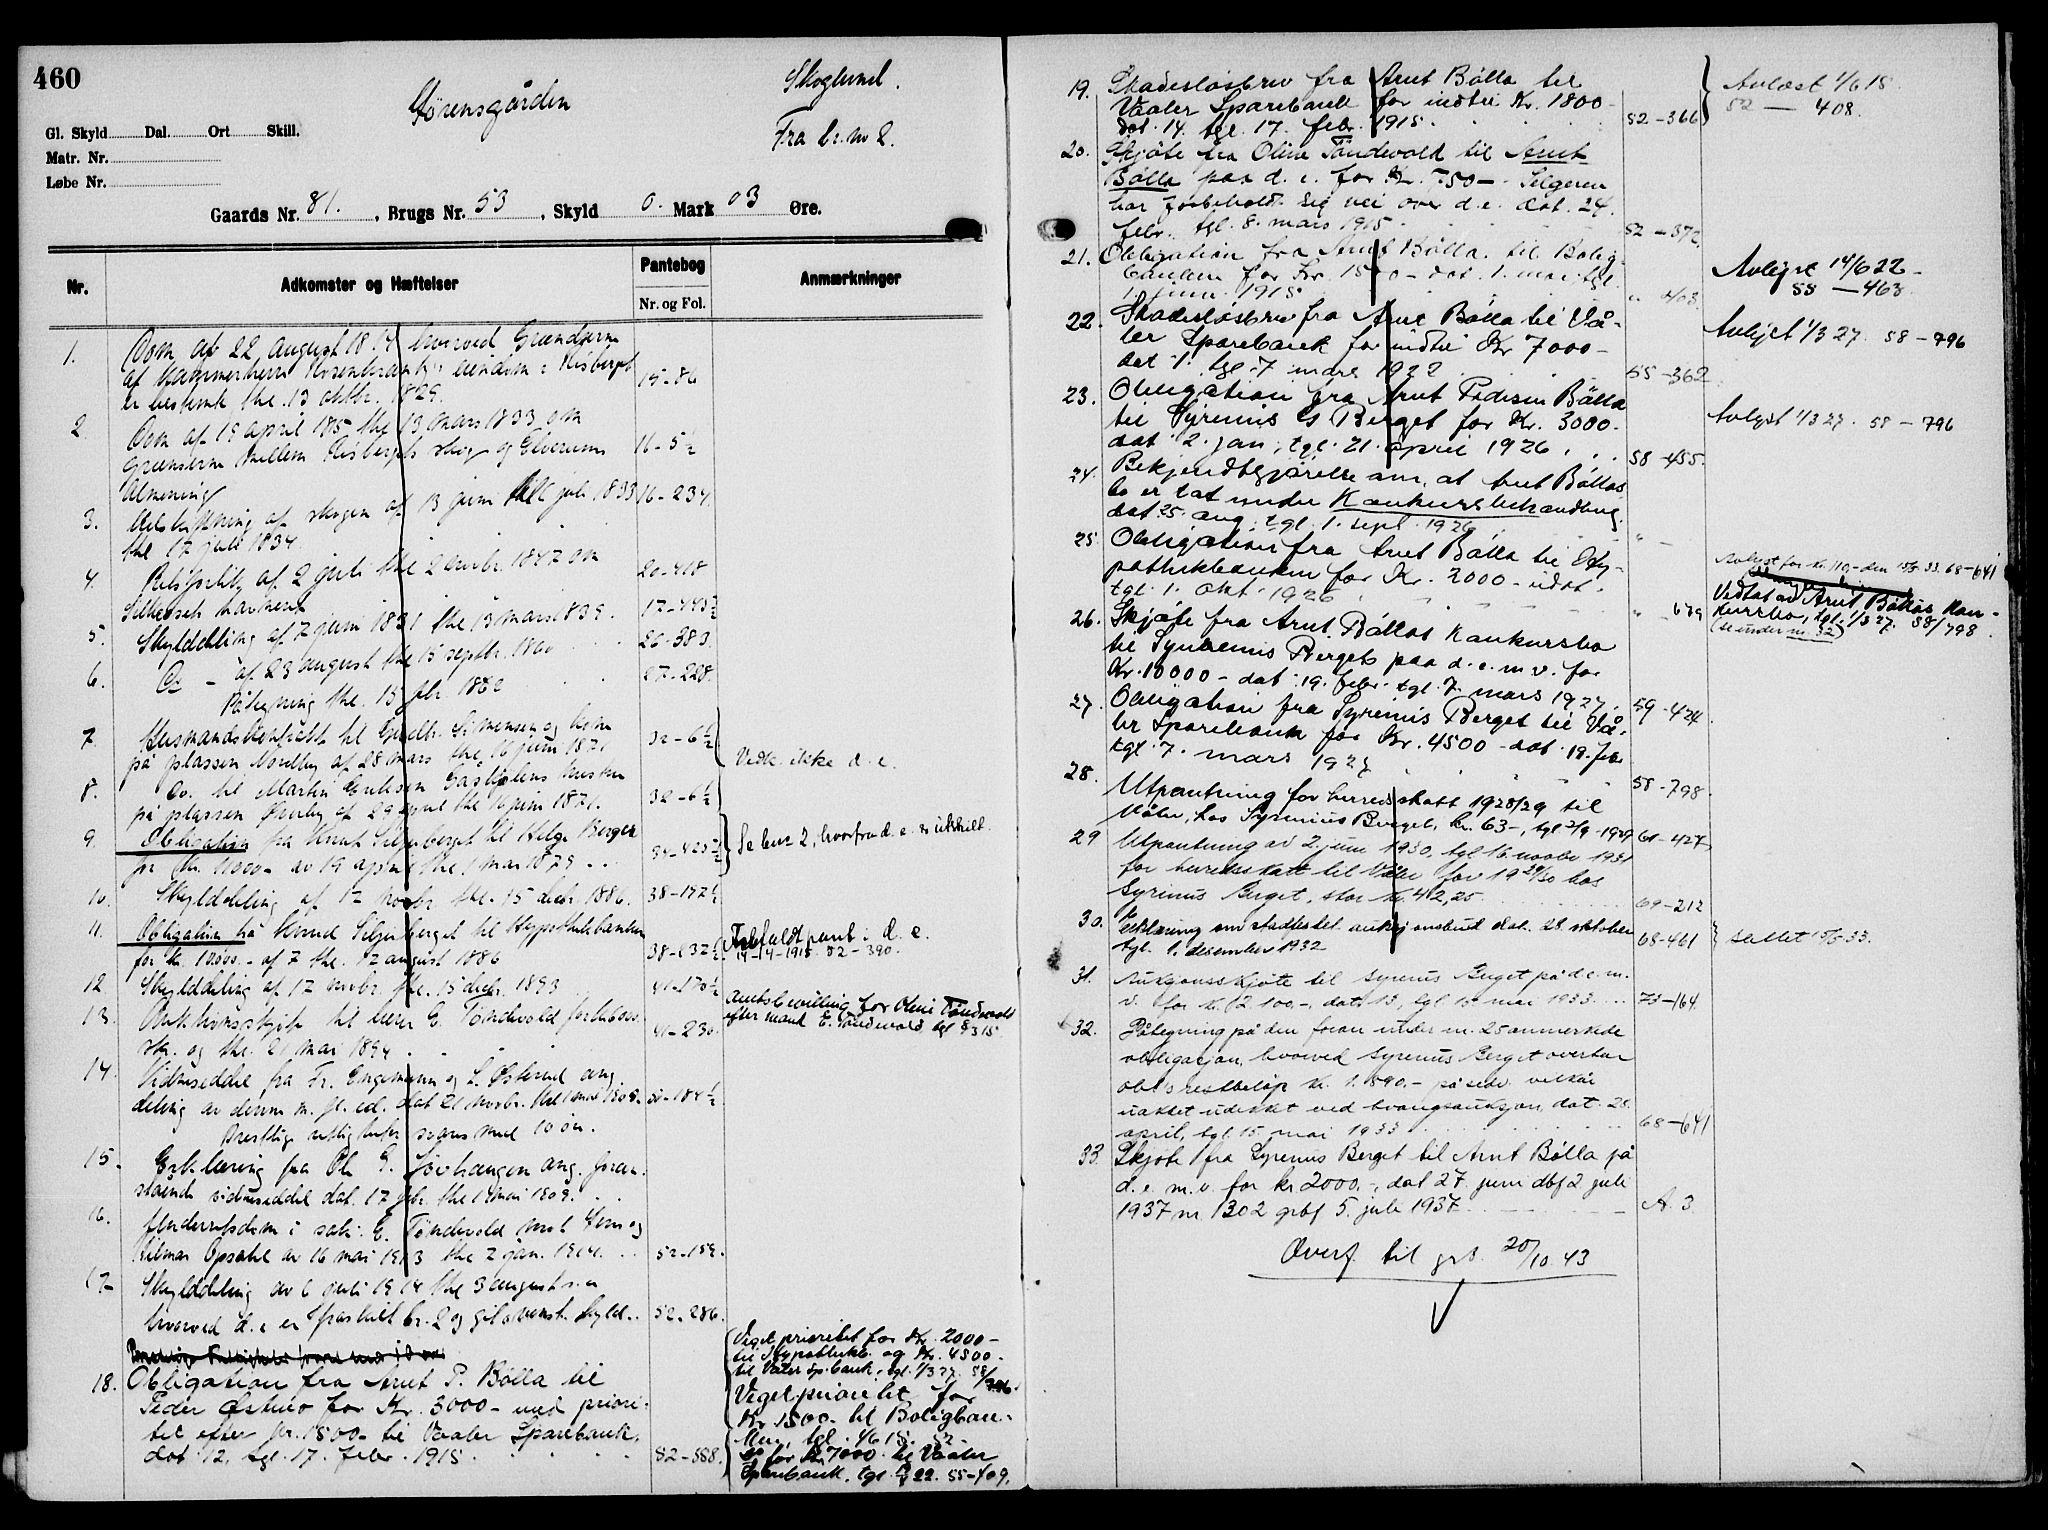 460
Sørensgården
Skoglund.
Fra br. nr 2.
Gl. Skyld Dal. Ort Skill.
Matr. Nr.
Løbe Nr.
Gaards Nr. 81. , Brugs Nr. 53 , Skyld 0. Mark 03 Øre.
Nr.
Adkomster og Hæftelser
Pantebog
Nr. og Fol.
Anmærkninger
1. Dom af 22 august 1814 hvorved Grændserne
af Kammerherre Rosenkrantz's eiendom i Risberget
er bestemt thl. 13 oktbr. 1829. 15-86
2. Dom af 19 april thl 13 mars 1833 om
Grænserne mellem Risbergets skog og Elverum
Almening 16-5½
3. af skogen af 13 juni juli 1833
thl 17 juli 1834. 16-234
4. Retsforlig af 2 juli thl 2 novbr. 1847 om
20-418
5. Skylddeling af 7 juni 1831 thl 13 mars 1839. 17-495½
6. Do - af 23 august thl 15 septbr. 1860 26-383
Påtegning thl. 15 febr. 1862 27-228
7. Husmandskontrakt til Gudbr. Simensen og kone
på plassen Nordby af 28 mars thl. 16 juni 1871 32-6½
Vedk. ikke d. e.
8. Do. til Martin Eriksen hustru
på plassen af 29 april thl 16 juni 1871. 32-6½
9. Obligation fra Knut Siljuberget til Helge Berger
for Kr. 11000- av 19 april thl 1 mai 1879 34-425½
Se bnr 2, hvorfra d. e. er utskilt.
10. Skylddeling af 17 novbr. thl. 15 decbr. 1886. 38-197½
11. Obligation fra Knud Siljuberget til Hypothekbanken
for kr. 10000.- af 7 thl. 12 august 1886 38-132½
Frafaldt pant i d. e.
14-4-1915. 52-390.
12 Skylddeling af 17 novbr. thl. 15 decbr. 1893 41-170½
13. Auktionsskjøte til lærer E. Tøndevold
skr. og thl. 21 mai 1894 41-230.
Amtsbevilling for Oline Tøndevold
efter mand E. Tøndevold tgl 8/3 15.
14. Vidneseddel fra Fr. Engemann og L. Østerud ang.
deling av denne m. fl. ed. dat 21 novbr. thl 1 mai 1909. 50-184½
svares med 10 øre.
15. Erklæring fra Ole E. Løvhaugen ang. foran-
stående vidneseddel dat. 17 febr. thl 1 mai 1909.
16. Underretsdom i sak: E. Tøndevold mot Jens og
Hilmar Opsahl av 16 mai 1913 thl 2 jan. 1914. 52-159.
17- Skylddeling av 6 juli 1914 thl 3 august s. a
hvorved d. e er fraskilt br. 2 og git ovenst. skyld. 52-286.
18. Obligation fra Arnt P. Bølla til
Peder Østmo for Kr. 3000- med priori-
tet efter Kr. 1800- til Vaaler Sparebank.
dat. 12, tgl. 17. febr. 1915. 52-358.
Viget prioritet for Kr. 2000-
til Hypotekbk. og Kr. 4500-
til Vaaler Sp.bank, tgl. 1/3 27. 58/796
Viget prioritet for
Kr 1500- til Boligban-
ken, tgl. 1/6 15. 52-
og for Kr. 7000. til Vaaler
Sparebank, tgl. 22. 55-409.
19. Skadesløsbrev fra Arnt Bølla til
Vaaler Sparebank for indtil Kr. 1800-
dat. 14. tgl. 17. febr. 1915. 52-366
Avlæst 1/6 15.
52 — 408.
20. Skjøte fra Oline Tøndevold til Arnt
Bølla paa d. e. for Kr. 750-. Selgeren
har forbeholdt sig vei over d. e. dat. 24.
febr. tgl. 8. mars 1915 52-372.
21. Obligation fra Arnt Bølla til Bolig-
banken for Kr. 1500- dat. 1. mai tgl.
1. juni 1915. " 408
Avlyst 14/6 22-
55 — 463.
22. Skadesløsbrev fra Arnt Bølla til Vå-
ler Sparebank for indtil Kr 7000-
dat 1. tgl. 7 mars 1922 55-362
Avlyst 1/3 27. 58-796
23. Obligation fra Arnt Pedersen Bølla
til Syrenius G Berget for Kr. 3000.
dat. 2. jan, tgl. 21. april 1926 58-455.
Avlyst 1/3 27. 58-796
24. Bekjendtgjørelse om, at Arnt Bøllas
bo er tat under Konkursbehandling.
dat 25. aug, tgl. 1. sept. 1926 " -
25. Obligation fra Arnt Bølla til Hy-
pothekbanken for Kr. 2000- udat.
tgl. 1. okt. 1926 " 679
Avlyst for kr. 110,- den 15/5 33. 68-641
Vedtat av Arnt Bøllas Kon-
kursbo, tgl. 1/3 27. 58/798.
(se under nr. 32)
26. Skjøte fra Arnt Bøllas Konkursbo
til Syrenius Berget paa d. e. m. v. for
Kr. 10000- dat. 19. febr. tgl. 7. mars 1927. 59-424.
27. Obligation fra Syrenius Berget til Vå-
ler Sparebank for Kr. 4500- dat. 19. febr.
tgl. 7. mars 1927 58-798.
28. Utpantning for herredsskatt 1928/29 til
Våler, hos Syrenius Berget, kr. 63-, tgl 2/9-1929 61-427
29 Utpantning av 2. juni 1930, tgl. 16. novbr 1931
for herredsskatt til Våler for 1929/30 hos
Syrenius Berget, stor kr. 412,25 69-212
30. Erklæring om stadfestet auksjonsbud dat. 28. oktober
tgl. 1. desember 1932 68-461
Slettet 15/5 33.
31. Auksjonsskjøte til Syrenius Berget på d. e. m.
v. for kr. 2 100,-, dat. 13, tgl. 15. mai 1933. 73-164
32. Påtegning på den foran under nr. 25 anmerkede
obligasjon, hvorved Syrenius Berget overtar
obl's restbeløp kr. 1.890.- på sedv. vilkår
uaktet udekket ved tvangsauksjon, dat. 28.
april, tgl. 15. mai 1933 68-641
33. Skjøte fra Syrenius Berget til Arnt Bølla på
d. e. m. v. for kr 2000.-, dat 27. juni dbf 2 juli
1937 nr. 1302 grbf 5. juli 1937 A. 3.
Overf. til grb. 20/10 43